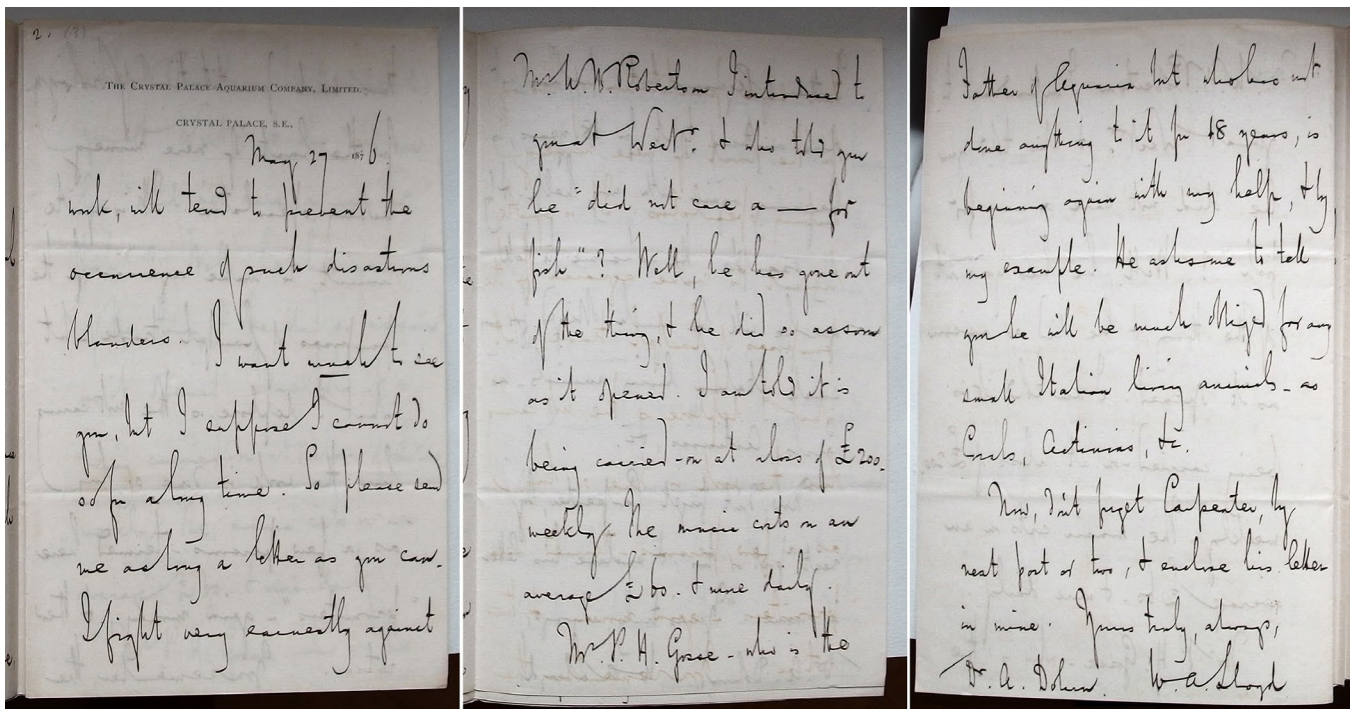 2. (3)
THE CRYSTAL PALACE AQUARIUM COMPANY, LIMITED.
CRYSTAL PALACE, S.E.,
May 27 1876.
work, will tend to prevent the
occurrence of such disastrous
blunders. I want much to see
you, but I suppose I cannot do
so for a long time. So please send
me as long a letter as you can.
I fight very earnestly against
Mr. W. W. Robertson I introduced to
you at West.r & who told you
he "did not care a — for
fish"? Well, he has gone out
of the thing, & he did so as soon
as it opened. I am told it is
being carried-on at a loss of £200.
weekly. The music costs on an
average £60. & more daily.
Mr. P. H. Gosse - who is the
Father of Aquaria but who has not
done anything to it for 18 years, is
beginning again with my help, & by
my example. He asks me to tell
you he will be much obliged for any
small Italian living animals - as
Corals, Actinias, &c.
Now, don't forget Carpenter, by
next post or two, & enclose his letter
in mine. Yours truly, always,
Dr. A. Dohrn. W. A. Lloyd